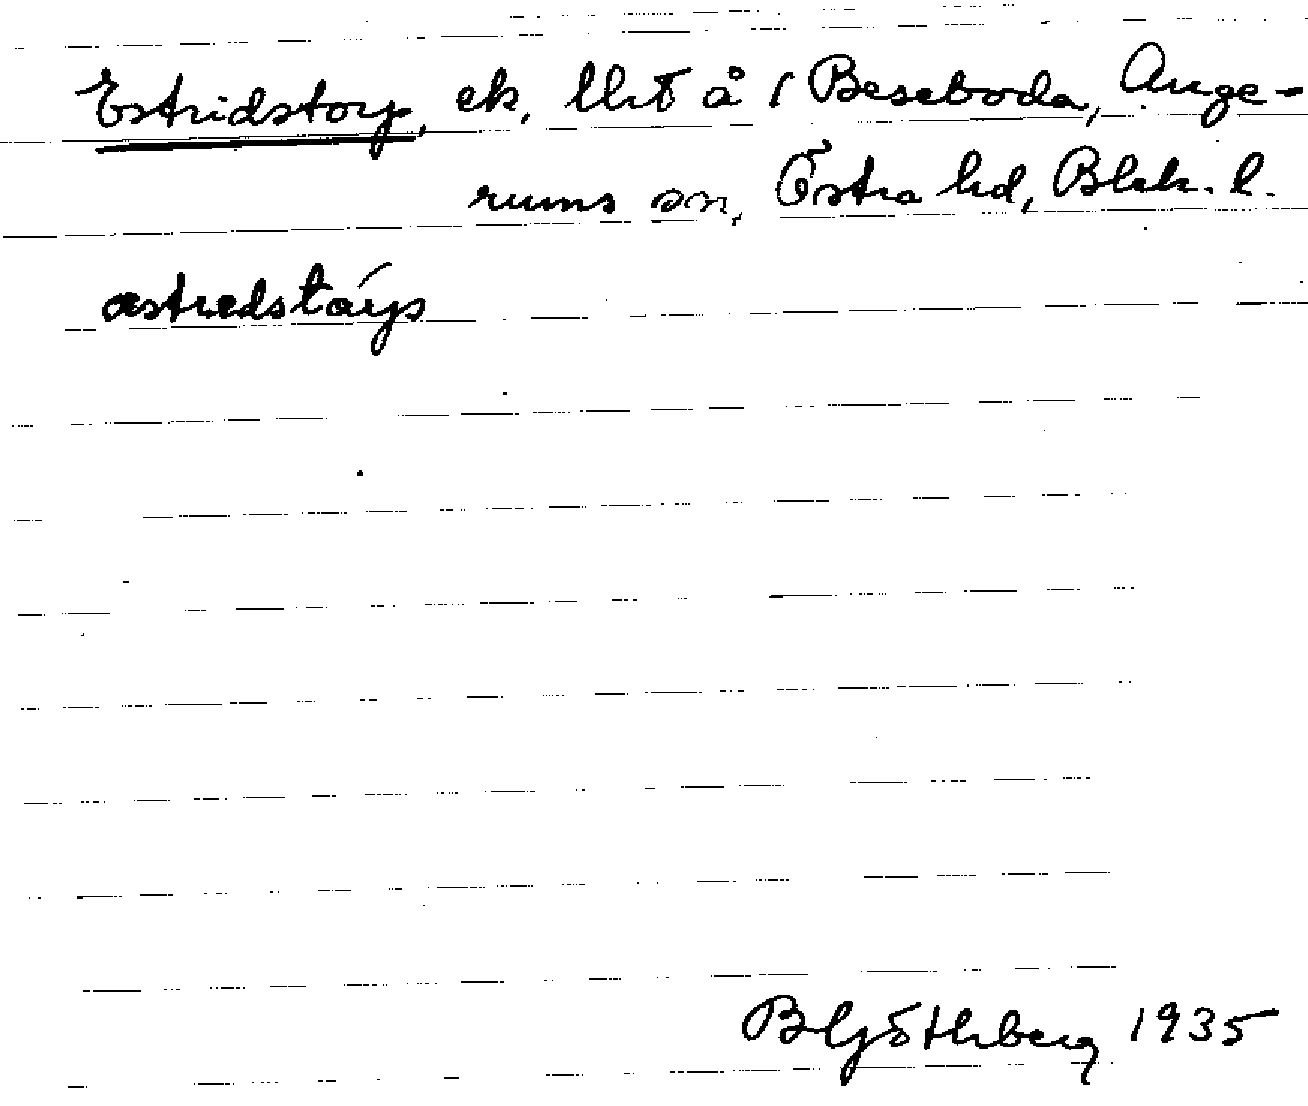 Estridstorp, ek. lht å 1 Beseboda, Ange-
rums sn, Östra hd, Blek. l.
astredstårp
1935